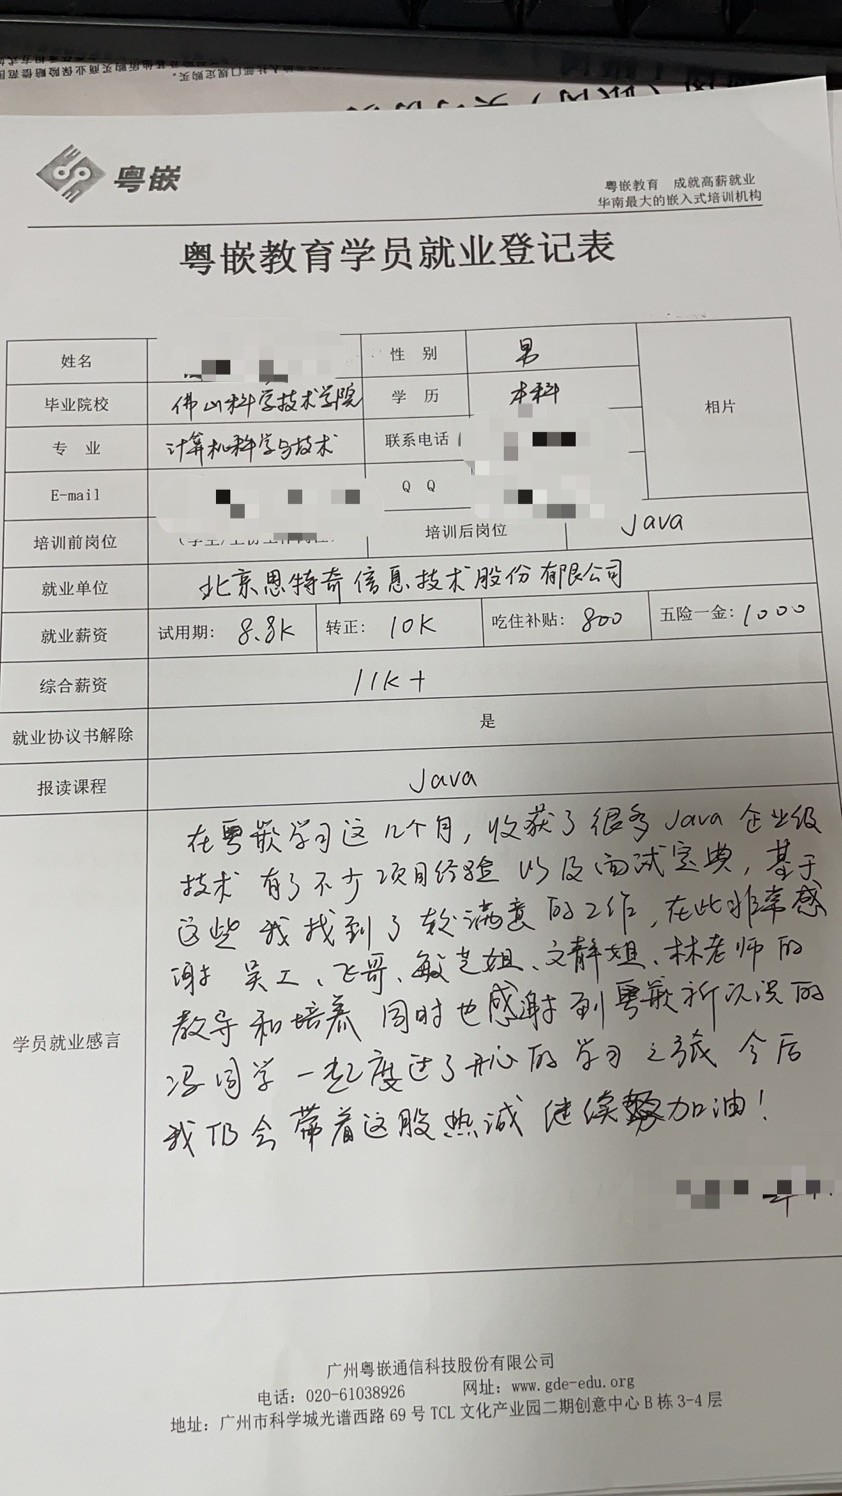 粤嵌
粤嵌教育 成就高薪就业
华南最大的嵌入式培训机构
粤嵌教育学员就业登记表
姓名 性 别 男
毕业院校 佛山科学技术学院 学 历 本科
相片
专 业 计算机科学与技术 联系电话
E-mail Q Q
培训前岗位 培训后岗位 Java
就业单位 北京思特奇信息技术股份有限公司
就业薪资 试用期: 8.8K 转正: 10K 吃住补贴: 800 五险一金: 1000
综合薪资 11K+
就业协议书解除 是
报读课程 Java
学员就业感言
在粤嵌学习这几个月,收获了很多Java企业级
技术 有了不少项目经验 以及面试宝典,基于
这些 我找到了较满意的工作,在此非常感
谢 吴工、飞哥、敏芝姐、文静姐、林老师的
教导和培养 同时也感谢到粤嵌所况的
冯同学 一起度过了开心的学习之旅 今后
我仍会带着这股热诚 继续 加油!
广州粤嵌通信科技股份有限公司
电话: 020-61038926 网址: www.gde-edu.org
地址: 广州市科学城光谱西路 69 号 TCL 文化产业园二期创意中心 B 栋 3-4 层